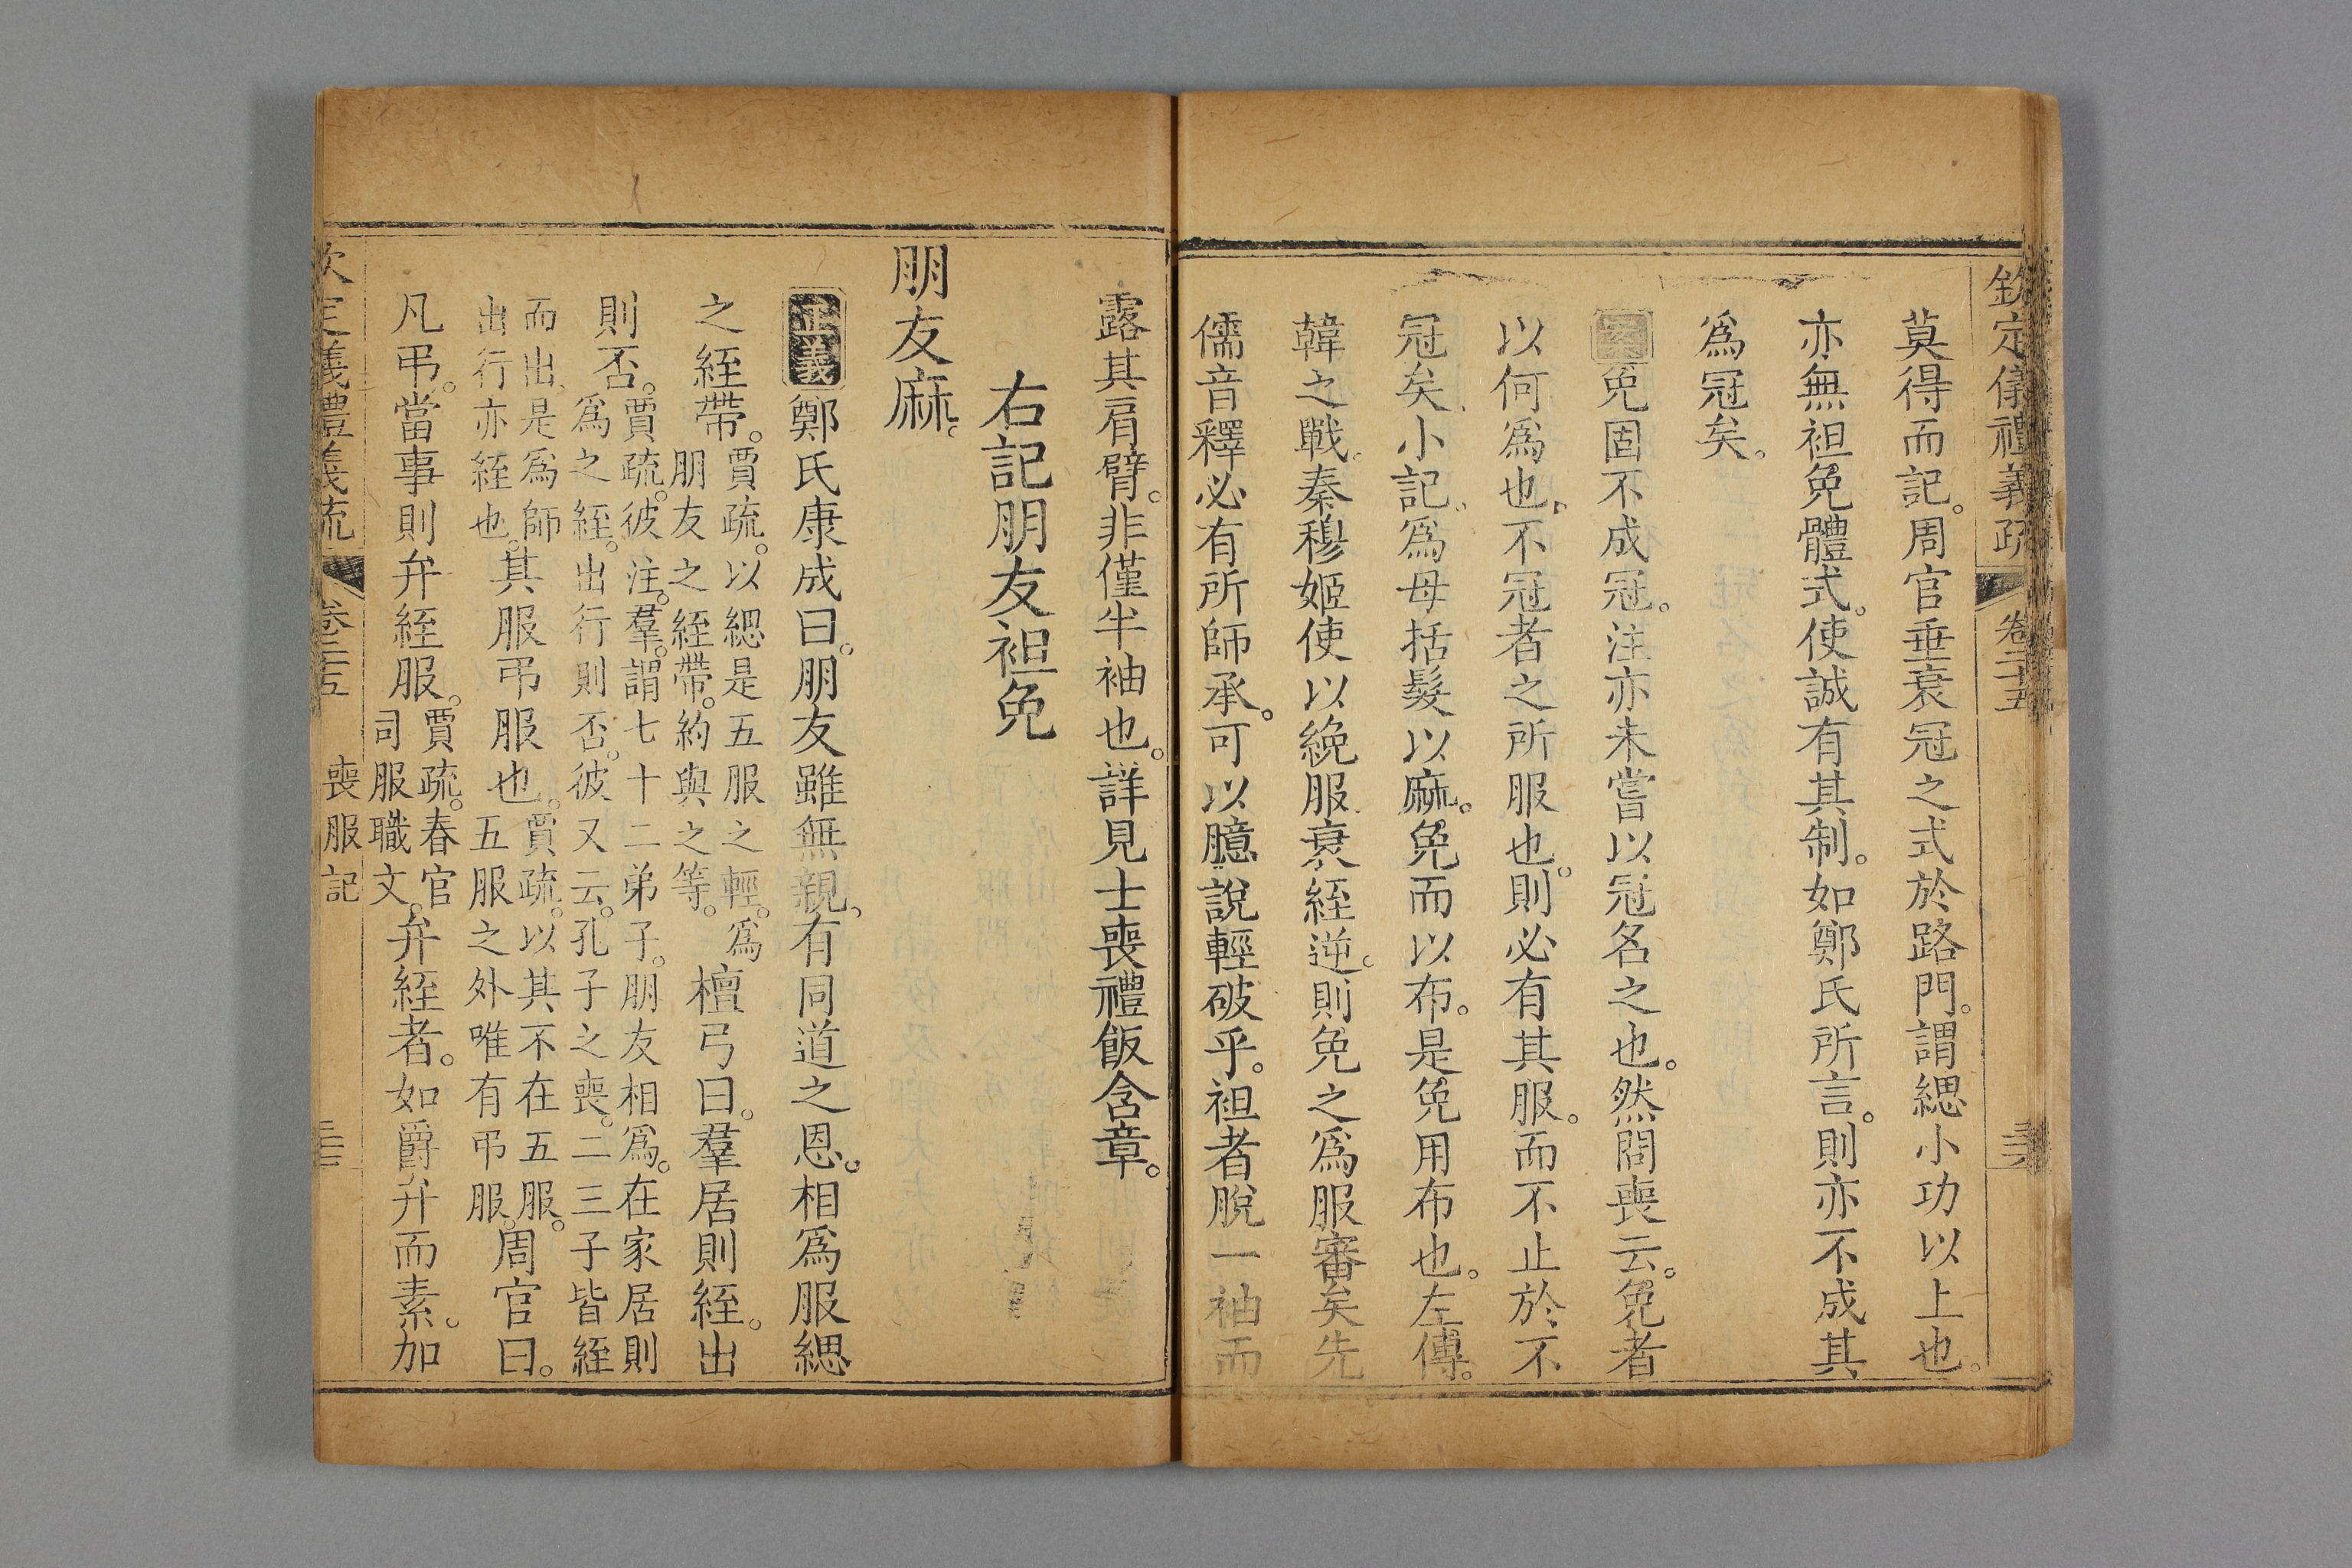 欽定儀禮義疏 卷二十五
莫得而記。周官垂衰冠之式於路門。謂緦小功以上也。
亦無袒免體式。使誠有其制。如鄭氏所言。則亦不成其
為冠矣。
案免固不成冠。注亦未嘗以冠名之也。然問喪云。免者
以何為也。不冠者之所服也。則必有其服。而不止於不
冠矣。小記。為母括髮以麻。免而以布。是免用布也。左傳。
韓之戰。秦穆姬使以絻服衰絰逆。則免之為服審矣先
儒音釋必有所師承。可以臆說輕破乎。袒者脫一袖而
露其肩臂。非僅半袖也。詳見士喪禮飯含章。
右記朋友袒免
朋友麻。
正義鄭氏康成曰。朋友雖無親。有同道之恩。相為服緦
之絰帶。賈疏。以緦是五服之輕。為朋友之絰帶。約與之等。檀弓曰。羣居則絰。出
則否。賈疏。彼注。羣。謂七十二弟子。朋友相為。在家居則為之絰。出行則否。彼又云。孔子之喪。二三子皆絰
而出。是為師出行亦絰也。其服弔服也。賈疏。以其不在五服。五服之外唯有弔服。周官曰。
凡弔。當事則弁絰服。賈疏。春官司服職文。弁絰者。如爵弁而素。加
喪服記